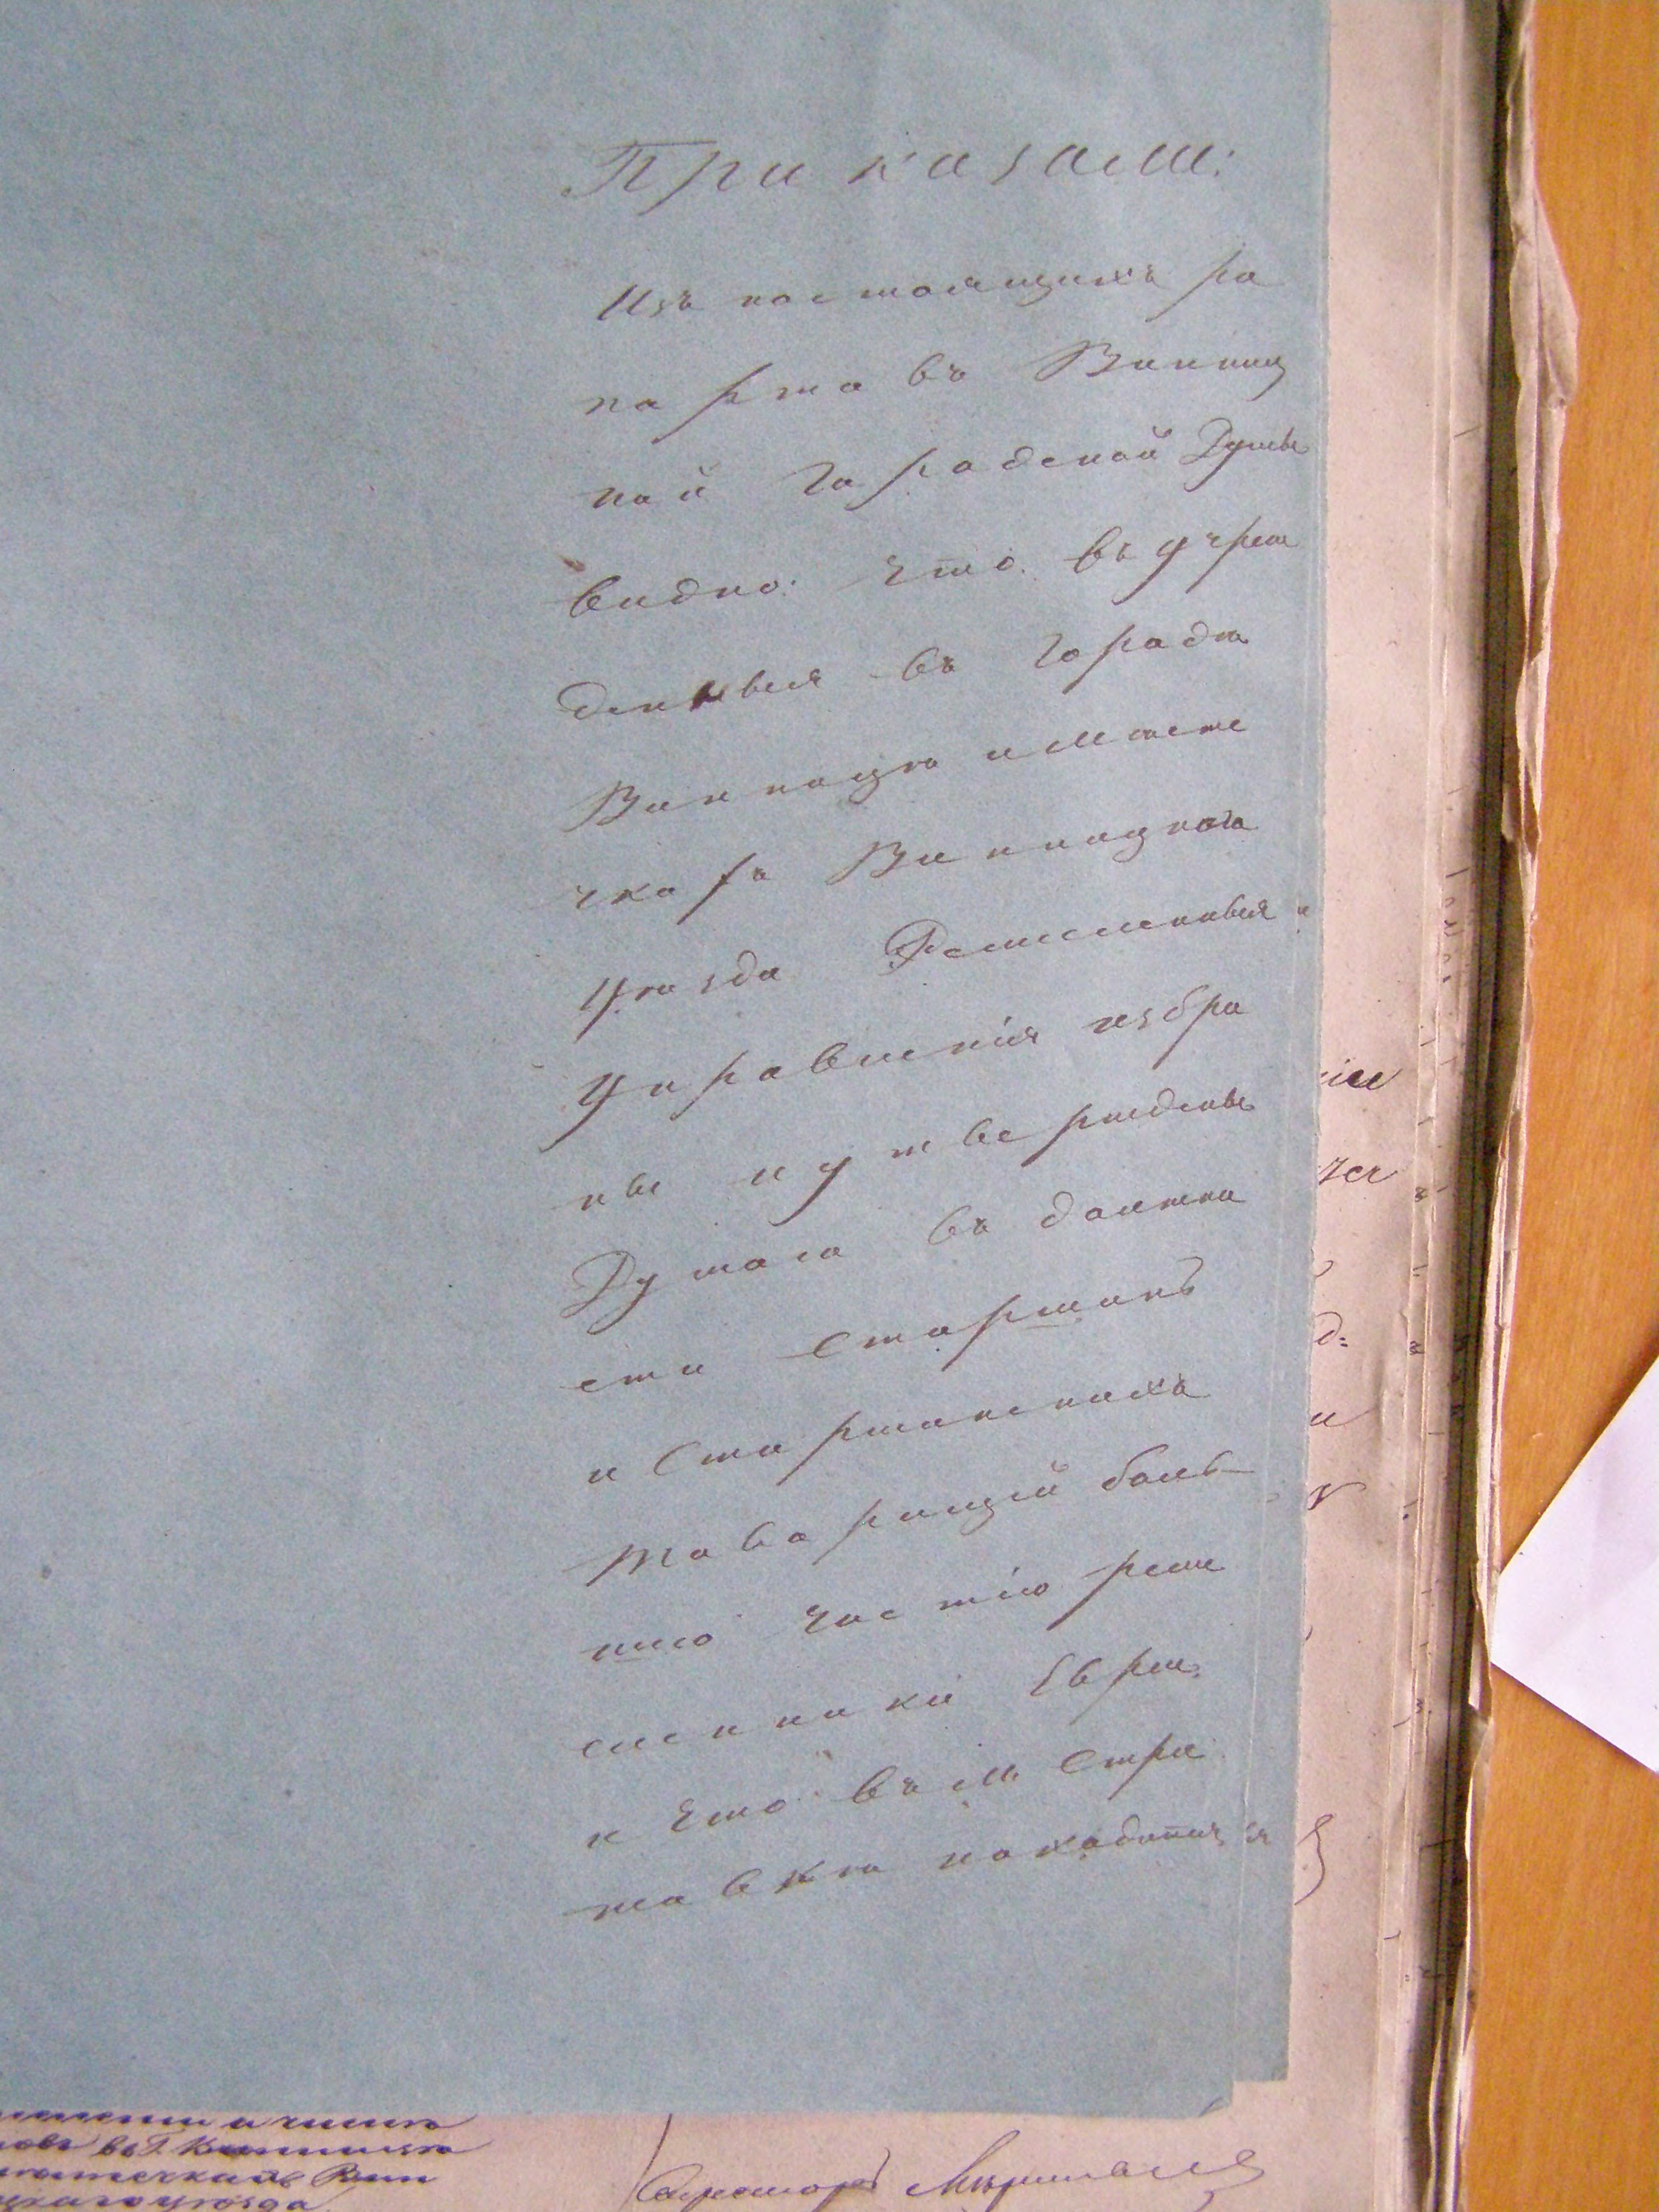 Приказали:
Изъ настоящихъ ра
порта въ Винниц
кой Городской Думы
видно: что въ учреж
денныя въ городѣ
Винницѣ и мѣсте
чкахъ Винницкаго
Уѣзда Ремесленныя
Управленія избра
ны и утверждены
Думаю въ должно
сти Старшинъ
и Старшинскихъ
Товарищей боль
шею частію реме
сленники Евреи
и что въ м. Стри
жавкѣ находится
въ Г. Винницѣ